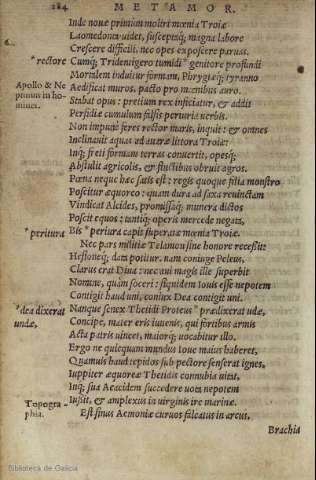 284 METAMOR.
Inde noue primum moliri mœnia Troiæ
Laomedonta uidet, susceptaq́; magna labore
Crescere difficili, nec opes exposcere paruas.
* rectore Cumq́; Tridenigero tumidi * genitore profundi
Mortalem induitur formam, Phrygiæq́; tyranno
Apollo & Ne
Aedificat muros, pacto pro mœnibus auro.
ptunus in ho
Stabat opus: pretium rex inficiatur, & addit
mines.
Perfidiæ cumulum falsis periuria uerbis.
Non impune feres rector maris, inquit: & omnes
Inclinauit aquas ad auaræ littora Troiæ:
Inq́; freti formam terras conuertit, opesq́;
Abstulit agricolis, & fluctibus obruit agros.
Pœna neque hæc satis est: regis quoque filia monstro
Poscitur æquoreo: quam dura ad saxa reuinctam
Vindicat Alcides, promissaq́; munera dictos
Poscit equos: tantiq́; operis mercede negata,
* periura Bis * periura capit superatæ mœnia Troiæ.
Nec pars militiæ Telamon sine honore recessit:
Hesioneq́; data potitur. nam coniuge Peleus,
Clarus erat Diua: nec aui magis ille superbit
Nomine, quàm soceri: siquidem Iouis esse nepotem
Contigit haud uni, coniux Dea contigit uni.
* dea dixerat Nanque senex Thetidi Proteus * prædixerat udæ,
undæ, Concipe, mater eris iuuenis, qui fortibus armis
Acta patris uincet, maiorq́; uocabitur illo.
Ergo ne quicquam mundus Ioue maius haberet,
Quamuis haud tepidos sub pectore senserat ignes,
Iuppiter æquoreæ Thetidis connubia uitat.
Inq́; sua Aeacidem succedere uota nepotem
Topogra- Iussit, & amplexus in uirginis ire marinæ.
phia. Est sinus Aemoniæ curuos falcatus in arcus,
Brachia
Biblioteca de Galicia